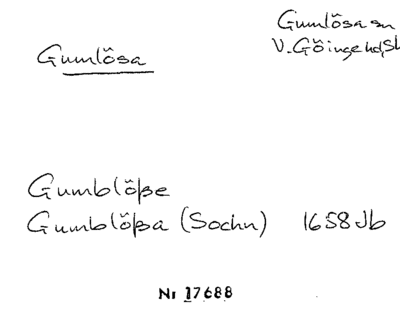 Gumlösa
Gumlösa sn
V. Göinge hd, Sk
Gumblöße
Gumblößa (Sochn) 1658 Jb
Nr 17688